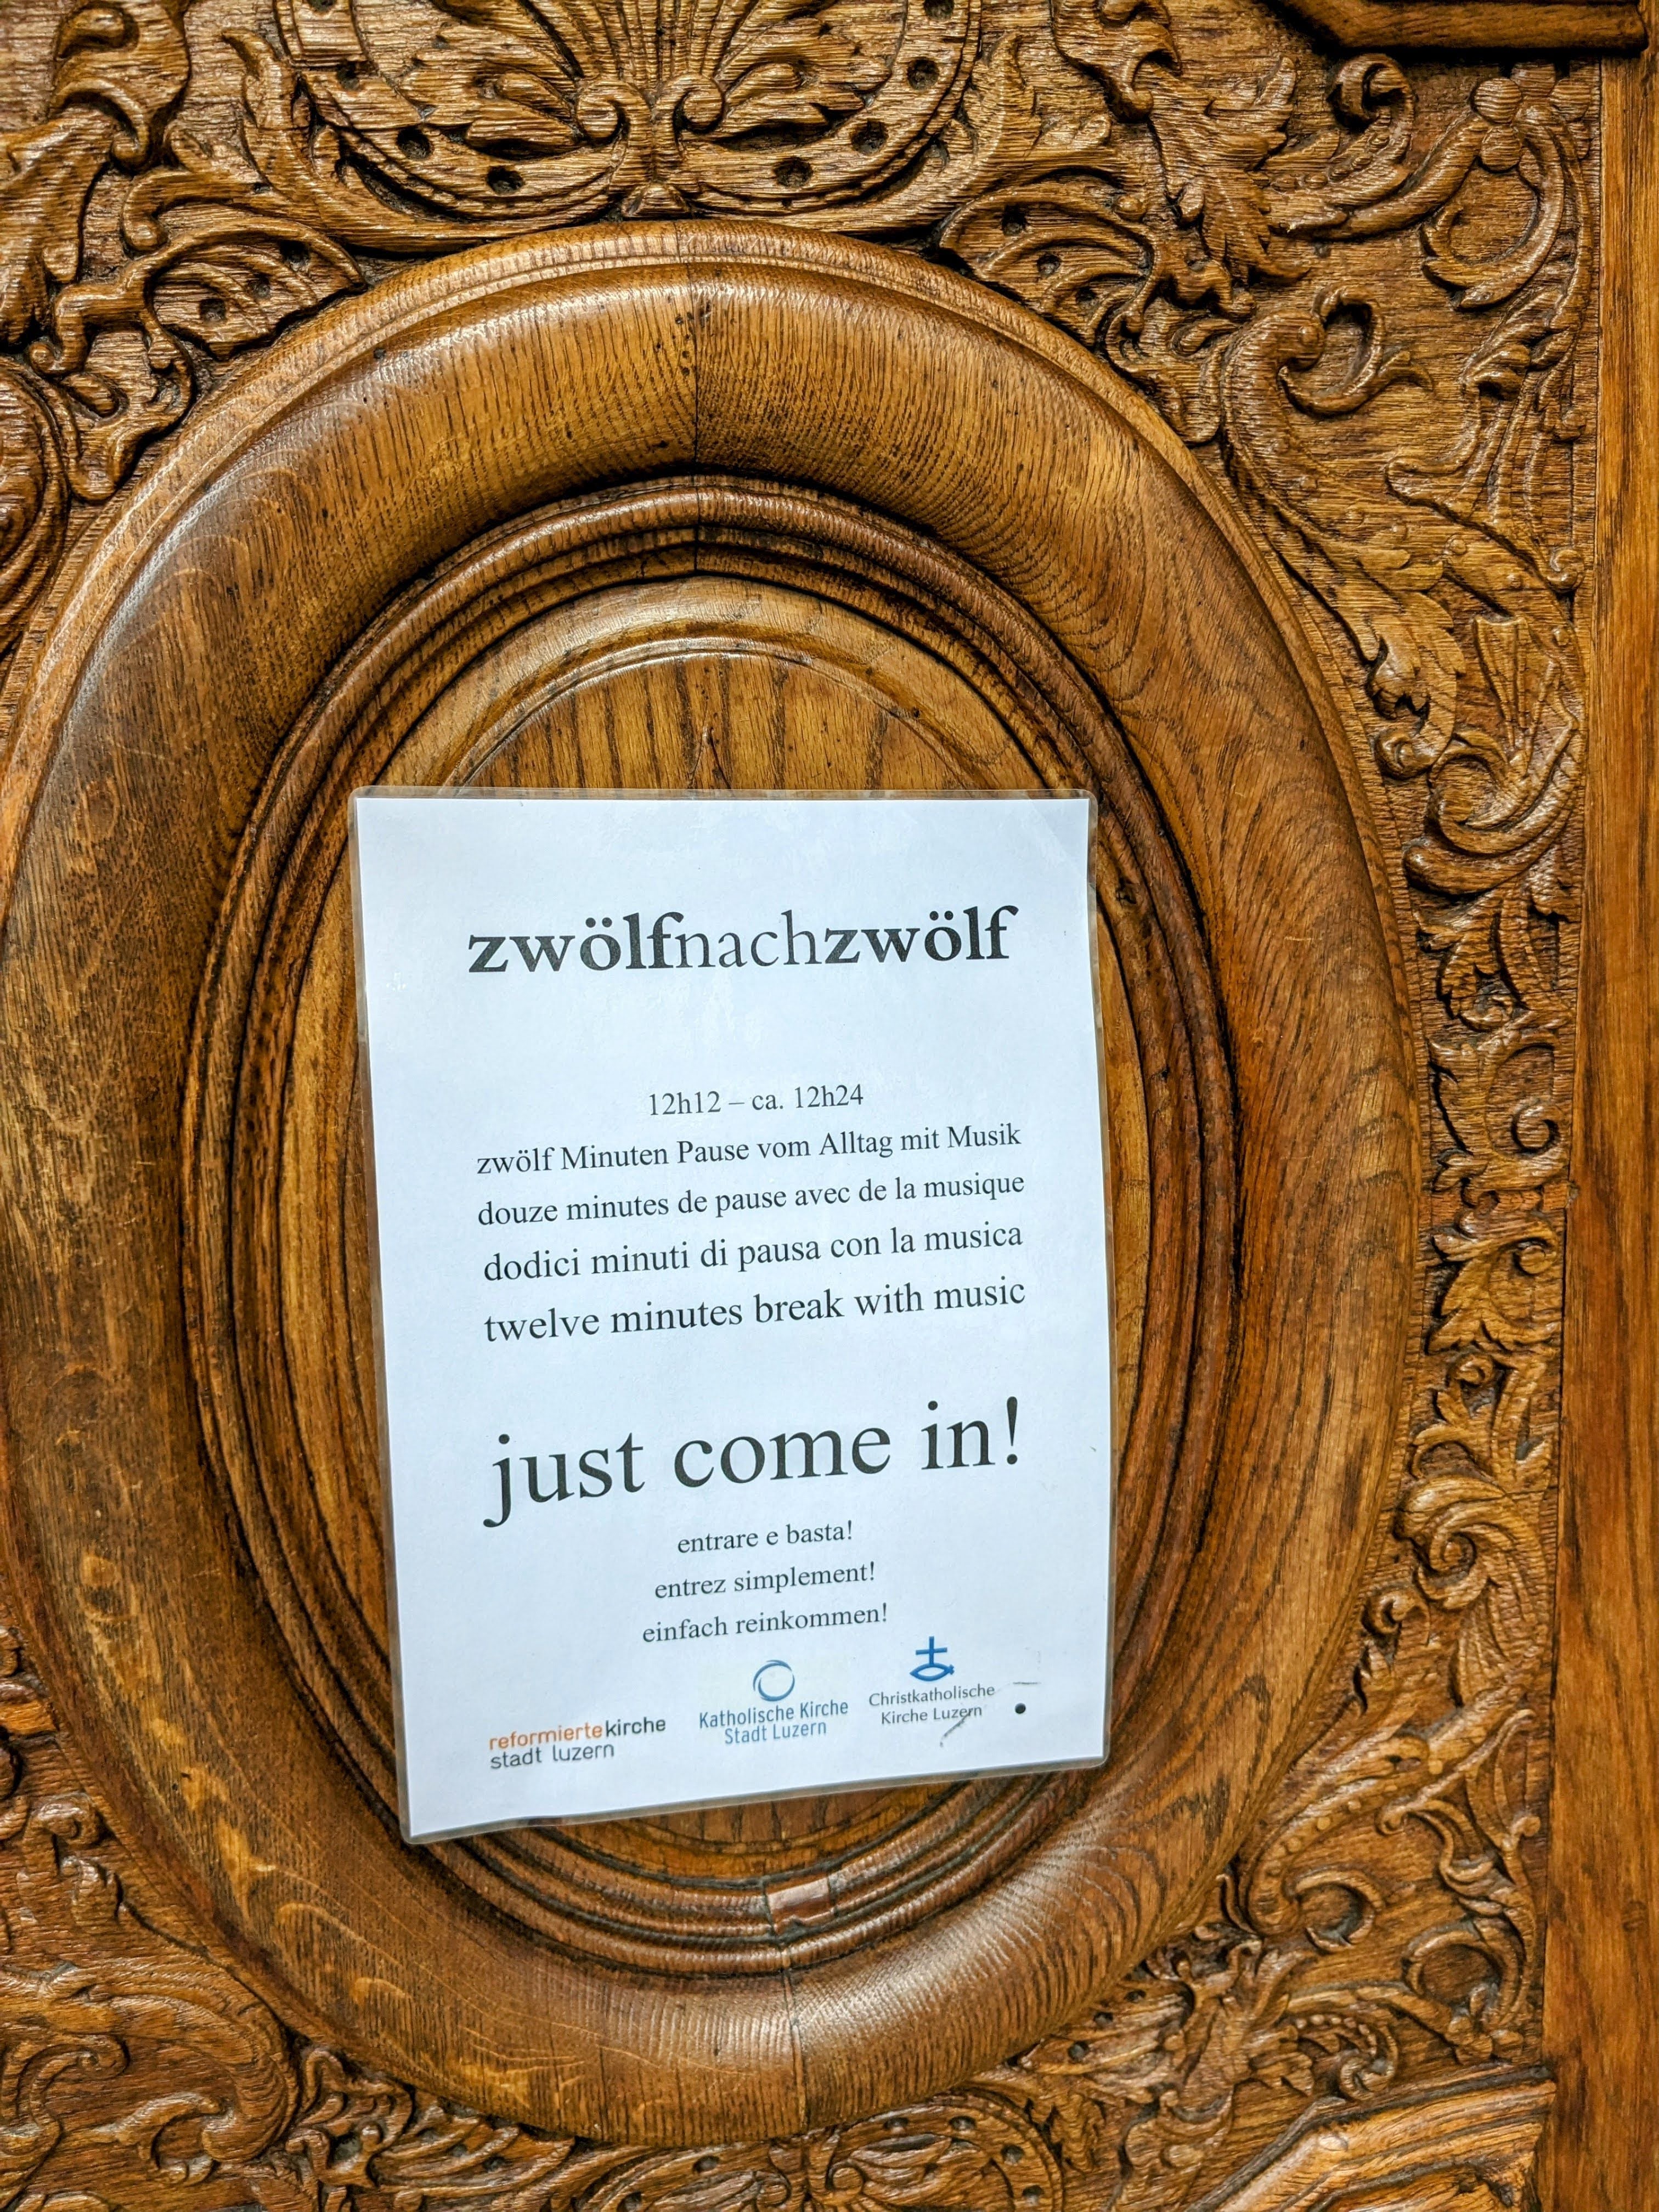 zwölfnachzwölf
12h12 – ca. 12h24
zwölf Minuten Pause vom Alltag mit Musik
douze minutes de pause avec de la musique
dodici minuti di pausa con la musica
twelve minutes break with music
just come in!
entrare e basta!
entrez simplement!
einfach reinkommen!
reformiertekirche
stadt luzern
Katholische Kirche
Stadt Luzern
Christkatholische
Kirche Luzern